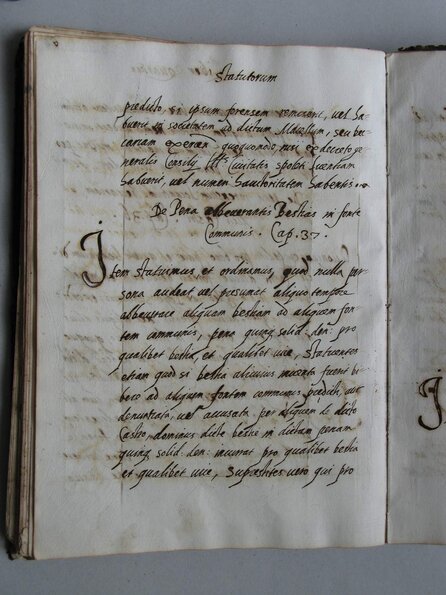 Statutorum
predicto, si ipsum forensem remiserit, vel ha-
buerit in societatem ad dictum Macellum, seu bec-
cariam exercen quoquomodo nisi ex decreto ge-
neralis Consilij Ill.ᵉ Civitatis Spoleti licentiam
habuerit, vel numen Sauctoritatem habentis.
De Pena abbeverantis Bestias in fonte
Communis. Cap. 37.
Item statuimus, et ordinamus, quod nulla per-
sona audeat vel presumat aliquo tempore
abbeverare aliquam bestiam ad aliquem fon-
tem communis, pena quinq solid: den: pro
qualibet bestia, et qualibet vice, Statuentes
etiam quod si bestia alicuius inventa fuerit bi-
bere ad aliquem fontem communis predicti, vel
denuntiata, vel accusata per aliquem de dicto
Castro, dominus dicte bestie in dictam penam
quinq solid: den: incurrat pro qualibet bestia
et qualibet vice, Superstites vero qui pro